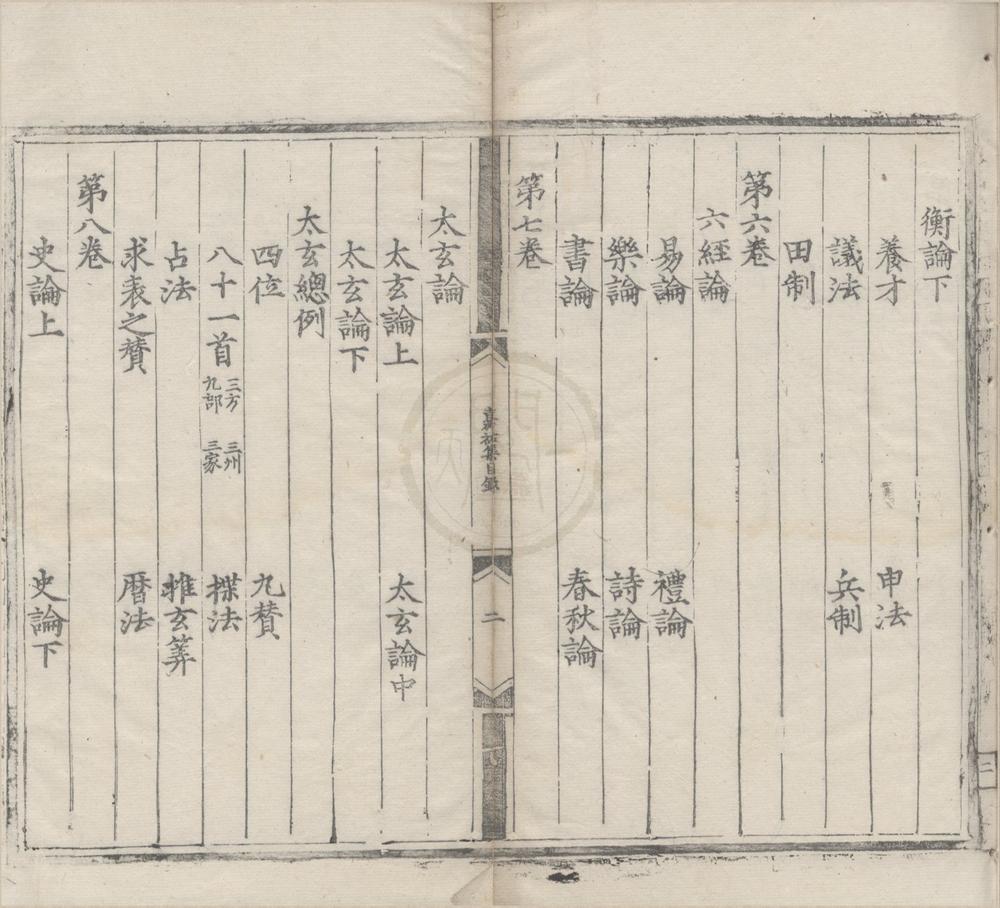 衡論下
養才 申法
議法 兵制
田制
第六卷
六經論
易論 禮論
樂論 詩論
書論 春秋論
第七卷
嘉祐集目録
二
太玄論
太玄論上 太玄論中
太玄論下
太玄總例
四位 九賛
八十一首 三方 三州 九部 三家 揲法
占法 推玄筭
求表之賛 曆法
第八卷
史論上 史論下